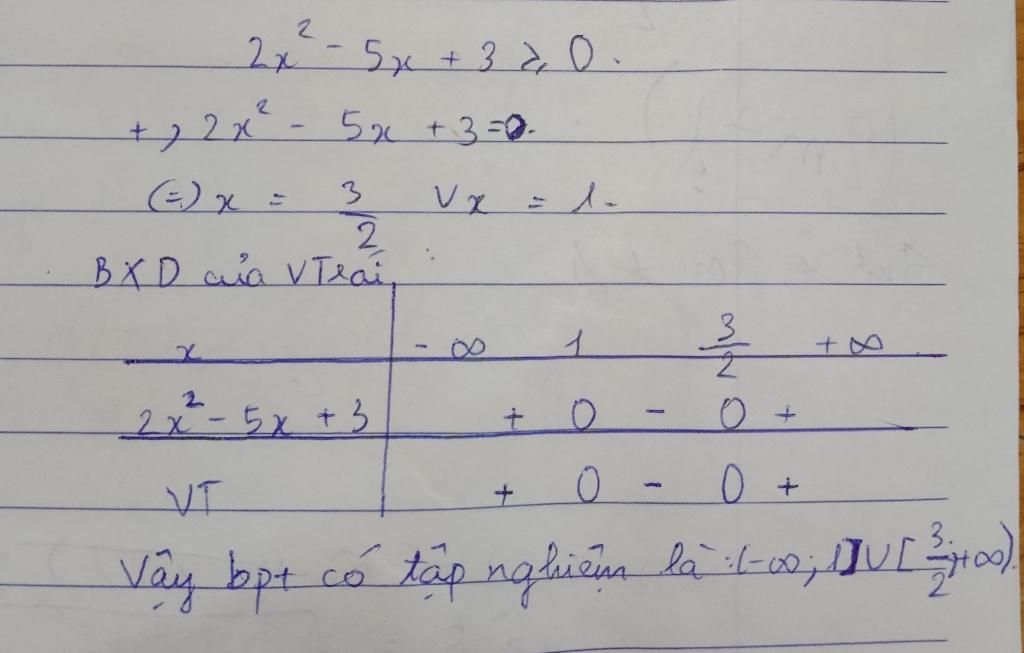 2x² - 5x + 3 ⩾ 0.
+, 2x² - 5x + 3 = 0.
(=) x = 3/2 V x = 1.
BXD của VTrái
x - ∞ 1 3/2 + ∞
2x² - 5x + 3 + 0 - 0 +
VT + 0 - 0 +
Vậy bpt có tập nghiệm là : (-∞; 1] U [3/2; +∞).